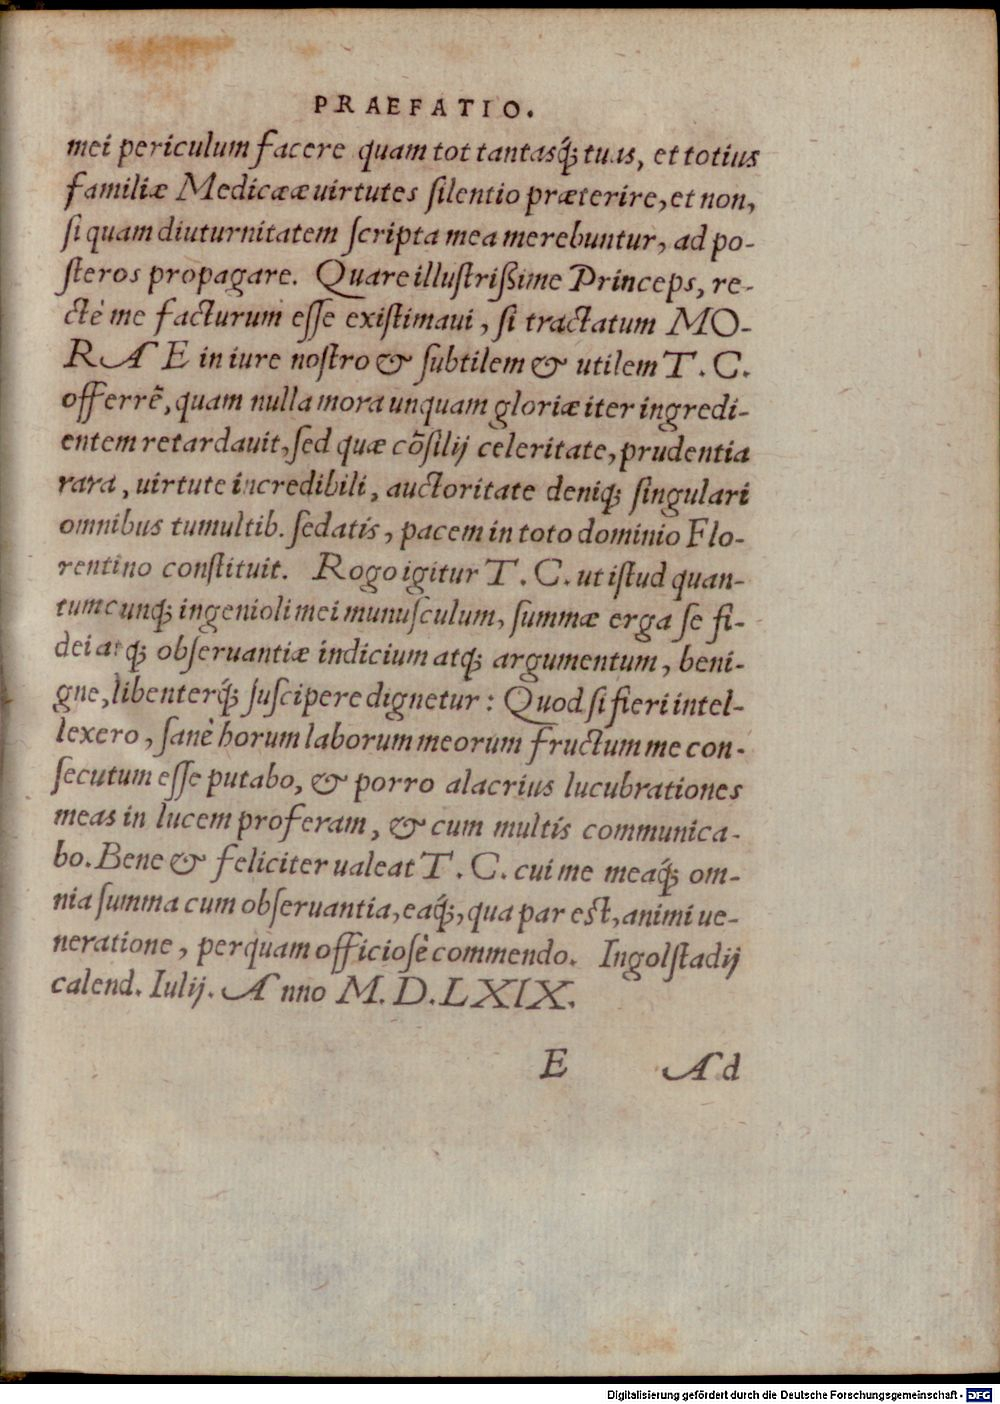 PRAEFATIO.
mei periculum facere quam tot tantasq́; tuas, et totius
familiæ Medicææ uirtutes ſilentio præterire, et non,
ſi quam diuturnitatem ſcripta mea merebuntur, ad po-
ſteros propagare. Quare illuſtriſſime Princeps, re-
ctè me facturum eſſe exiſtimaui, ſi tractatum MO-
RAE in iure noſtro & ſubtilem & utilem T. C.
offerrē, quam nulla mora unquam gloriæ iter ingredi-
entem retardauit, ſed quæ cōſilij celeritate, prudentia
rara, uirtute incredibili, auctoritate deniq; ſingulari
omnibus tumultib. ſedatis, pacem in toto dominio Flo-
rentino conſtituit. Rogo igitur T. C. ut iſtud quan-
tumcunq; ingenioli mei munuſculum, ſummæ erga ſe fi-
dei atq; obſeruantiæ indicium atq; argumentum, beni-
gne, libenterq́; ſuſcipere dignetur: Quod ſi fieri intel-
lexero, ſanè horum laborum meorum fructum me con-
ſecutum eſſe putabo, & porro alacrius lucubrationes
meas in lucem proferam, & cum multis communica-
bo. Bene & feliciter ualeat T. C. cui me meaq́; om-
nia ſumma cum obſeruantia, eaq́;, qua par eſt, animi ue-
neratione, perquam officioſè commendo. Ingolſtadij
calend. Iulij. Anno M. D. LXIX.
E Ad
Digitalisierung gefördert durch die Deutsche Forschungsgemeinschaft - DFG